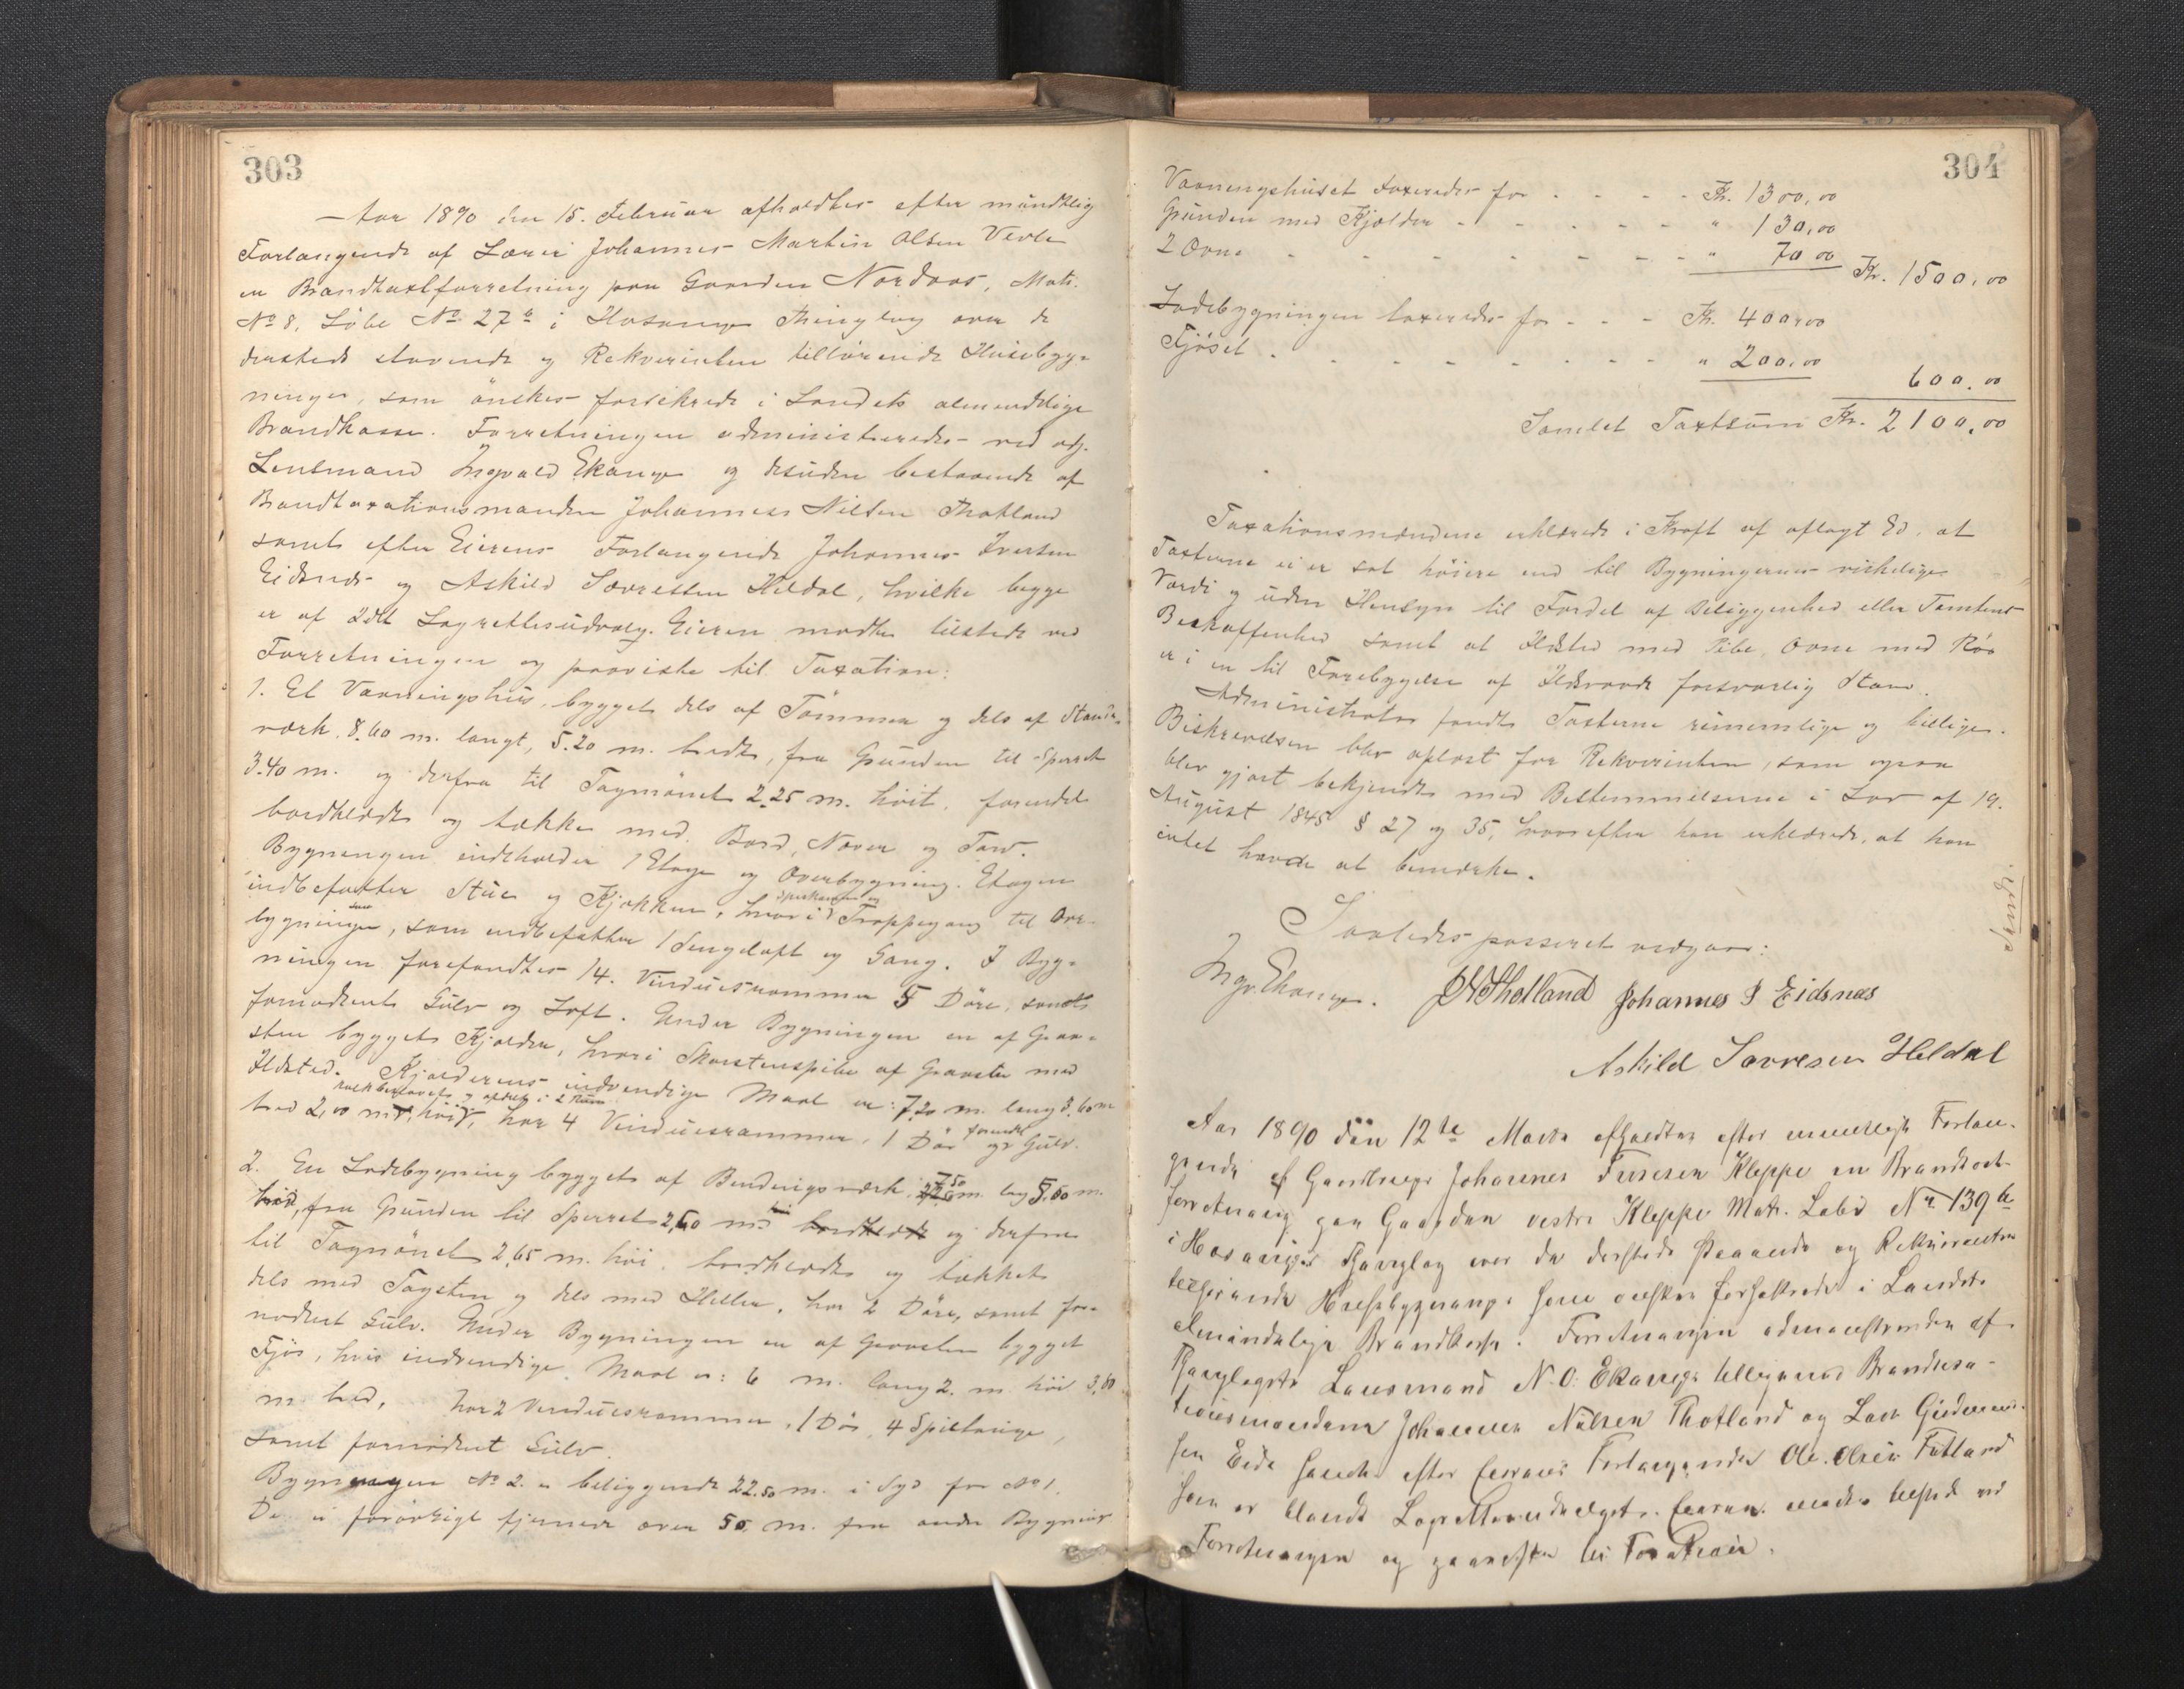 303
Aar 1890 den 15. Februar afholdtes efter mundtlig
Forlangende af Lærer Johannes Martin Olsen Verle
en Brandtaxtforretning paa Gaarden Nordaas, Matr.
No 8, Løbe No 27b i Hosanger Thinglag over de
dersteds staaende og Rekvirenten tilhørende Husebyg-
ninger, som ønskes forsikrede i Landets almindelige
Brandkasse. Forretningen administreredes ved adj.
Lensmand Ingvald Ekanger og desuden bestaaende af
Brandtaxationsmanden Johannes Nilsen Thotland
samt efter Eierens Forlangende Johannes Iversen
Eidsnes og Askild Sævresen Heldal, hvilke begge
er af 2det Lagrettesudvalg. Eieren mødte tilstede ved
Forretningen og paaviste til Taxation:
1. Et Vaaningshus, bygget dels af Tømmer og dels af Stavær-
værk, 8.60 m. langt, 5.20 m. bredt, fra Grunden til Sperret
3.40 m. og derfra til Tagmønet 2.25 m. høit, forindels
bordklædt og tækket med Bord, Næver og Torv.
Bygningen indeholder 1 Etage og Overbygning. Etagen
indbefatter Stue og Kjøkken, hvori Spiskammer og Trappegang til Over-
bygningen, som indbefatter 1 Sengeloft og Gang. I Byg-
ningen forefandtes 14 Vinduesrammer 5 Døre, samt
fornødent Gulv og Loft. Under Bygningen en af Graa-
sten bygget Kjælder, hvori Skorstenspibe af Graasten med
Ildsted. Kjælderens indvendige Maal er: 7.20 m. lang 3.60 m
bred 2,00 m. høi, har 4 Vinduesrammer, 1 Dør og Gulv.
2. En Ladebygning bygget af Bindingsværk, 7.50 m. lang 5.50 m.
bred, fra Grunden til Sperret 2,60 m. høi bordklædt og derfra
til Tagmønet 2,65 m. høi, bordklædt og tækket
dels med Tagsten og dels med Heller, har 2 Døre, samt for-
nødent Gulv. Under Bygningen en af Graasten bygget
Fjøs, hvis indvendige Maal er: 6 m. lang 2. m. høi 3,80
m. bred, har 2 Vinduesrammer, 1 Dør, 4 Spiltauge,
samt fornødent Gulv.
Bygningen No 2. er beliggende 22.50 m. i Syd for No 1.
De er forøvrigt fjernede over 50 m. fra andre Bygninger
304
Vaaningshuset taxeredes for - - - - Kr. 1300,00
Grunden med Kjælder - - - - - - " 130,00
2 Ovne - - - - - - - - " 70 00 Kr. 1500,00
Ladebygningen taxeredes for - - - Kr. 400,00
Fjøset - - - - - - - - " 200,00
600.00
Samlet Taxtsum Kr. 2100,00
Taxationsmændene erklærede i Kraft af aflagt Ed, at
Taxterne ei er sat høiere end til Bygningernes virkelige
Værdi og uden Hensyn til Fordel af Beliggenhed eller Tomtens
Beskaffenhed samt at Ildsted med Pibe, Ovne med Rør
er i en til Forebyggelse af Ildsvaade forsvarlig Stand.
Administrator fandt Taxterne rimelige og billige.
Beskrivelsen blev oplæst for Rekvirenten, som ogsaa
blev gjort bekjendt med Bestemmelserne i Lov af 19.
August 1845 § 27 og 35, hvorefter han erklærede, at han
intet havde at bemærke.
Sendt.
Saaledes passeret vedgaaes:
Ingv. Ekanger. JNThotland Johannes I Eidsnæs
Askild Sævresen Heldal
Aar 1890 den 12te Marts afholdtes efter mundtligt Forlan-
gende af Gaardbruger Johannes Iversen Kleppe en Brandtaxt-
forretning paa Gaarden vestre Kleppe Matr. Løbe No 139b
i Hosangers Thinglag over de dersteds staaende og Rekvirenten
tilhørende Husebygninger som ønskes forsikrede i Landets
almindelige Brandkasse. Forretningen administreredes af
Thinglagets Lensmand N. O. Ekanger tilligemed Brandtaxa-
tionsmændene Johannes Nilsen Thotland og Lars Gudmund-
sen Eide samt efter Eierens Forlangende Ole Olsen Fatland
som er blandt Lagrettesudvalget. Eieren mødte tilstede ved
Forretningen og paaviste til Taxation.